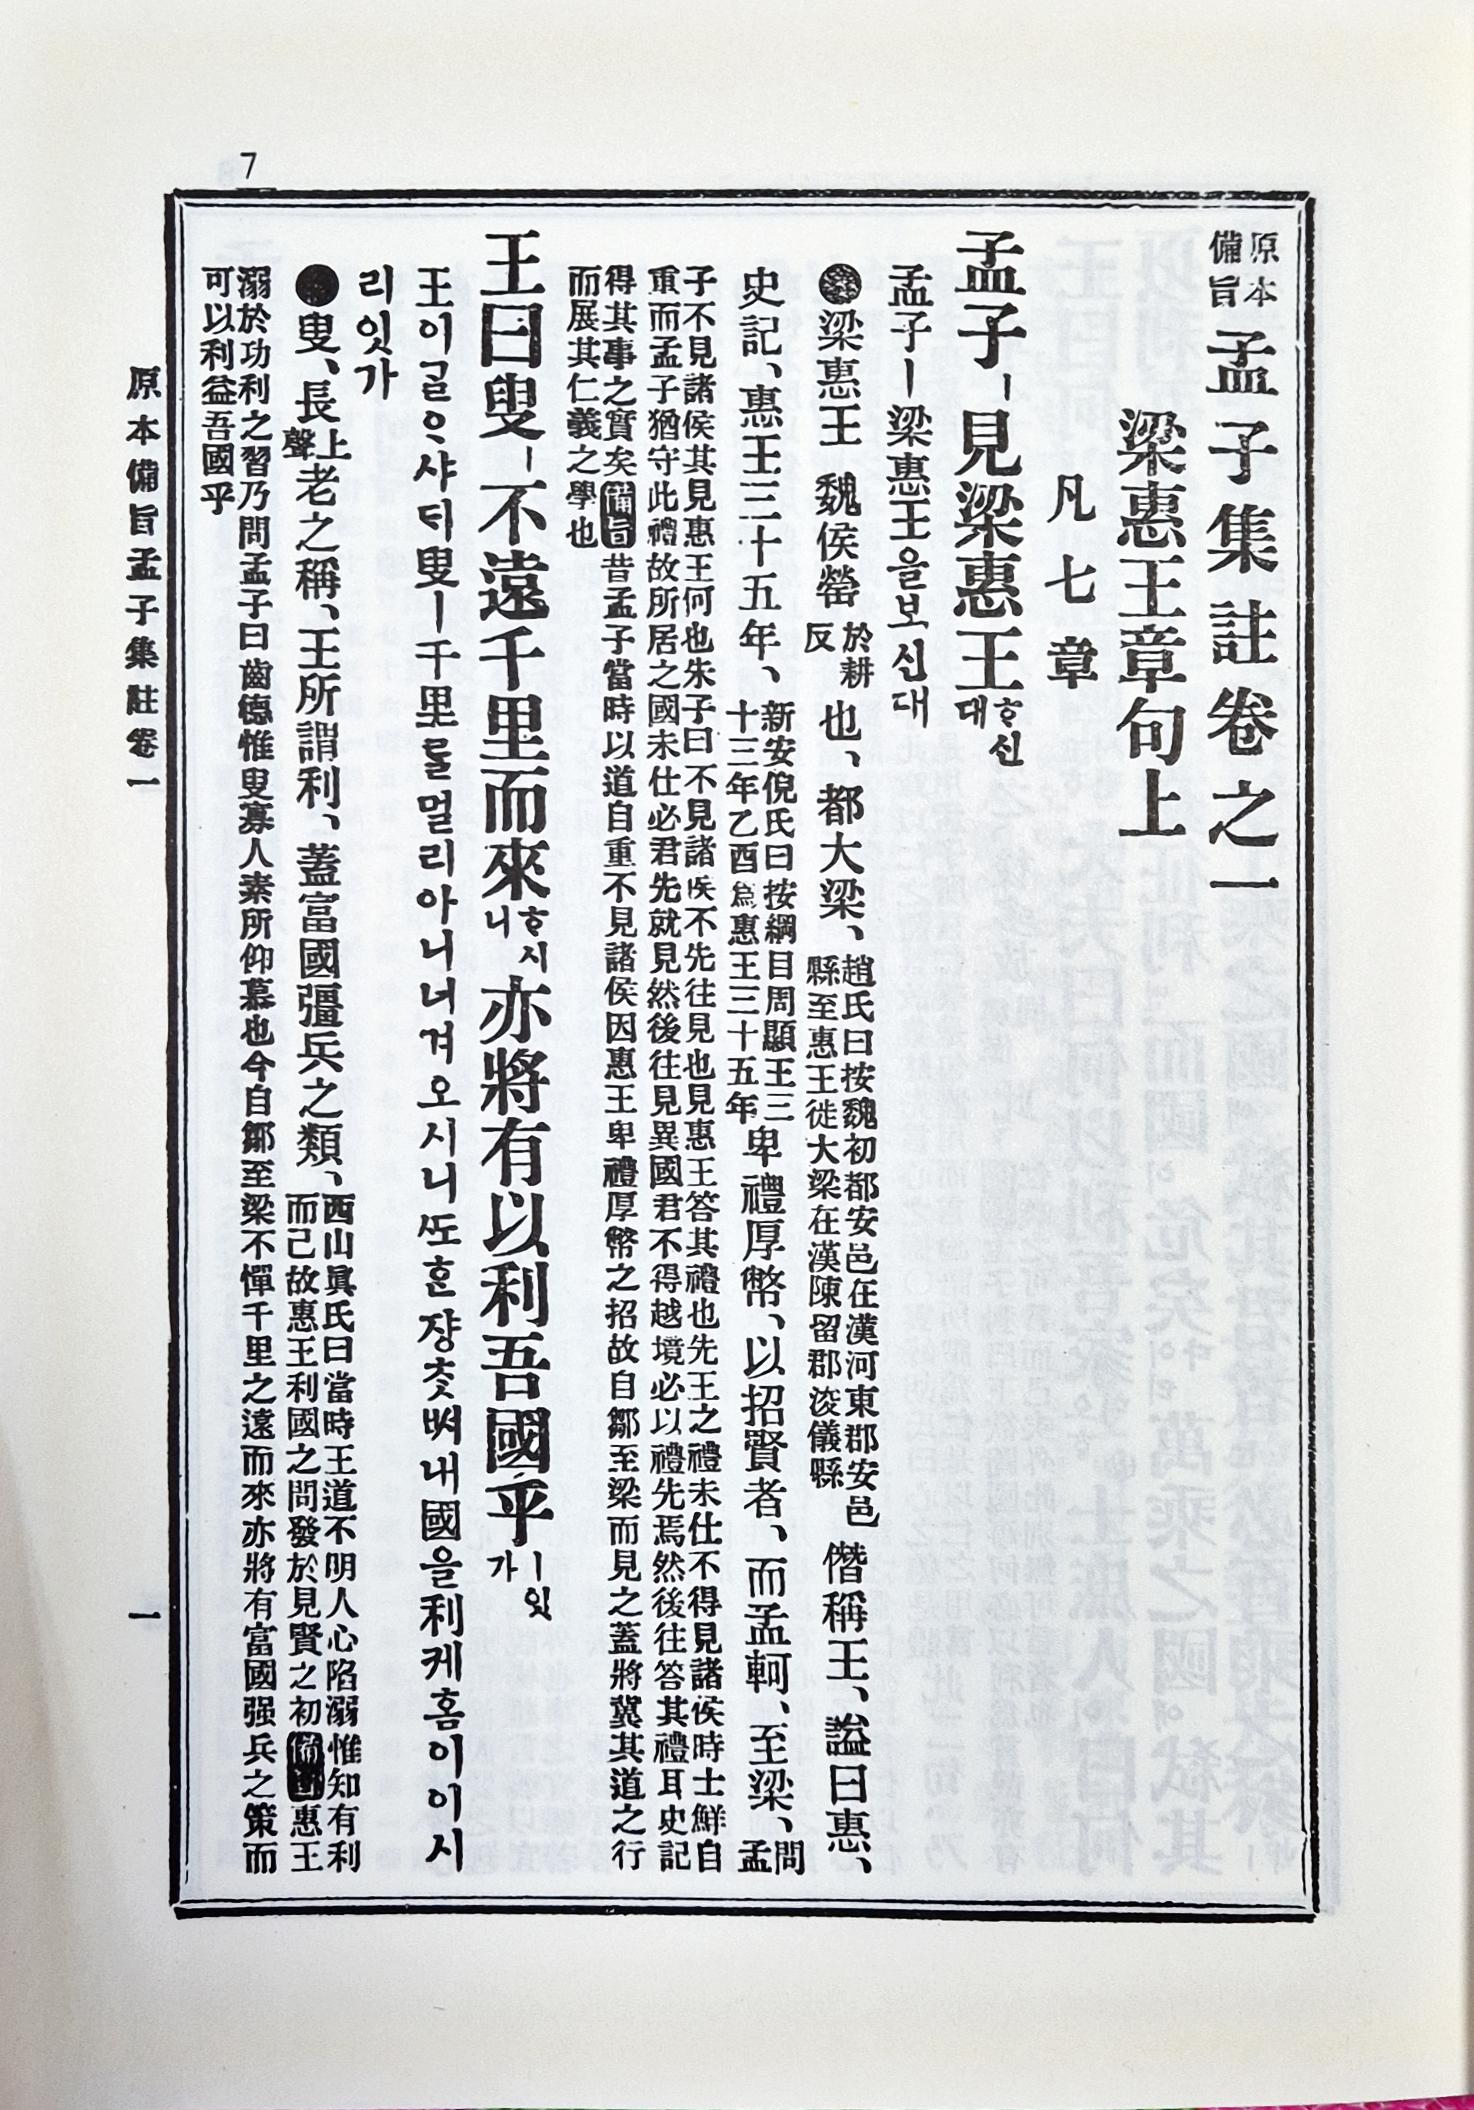 原本備旨孟子集註卷之一
梁惠王章句上
凡七章
孟子ㅣ見梁惠王ᄒᆞ신대
孟子ㅣ梁惠王을보신대
梁惠王魏侯罃於耕反也、都大梁、趙氏曰按魏初都安邑在漢河東郡安邑縣至惠王徙大梁在漢陳留郡浚儀縣僭稱王、諡曰惠、
史記、惠王三十五年、新安倪氏曰按綱目周顯王三十三年乙酉爲惠王三十五年卑禮厚幣、以招賢者、而孟軻、至梁、問孟
子不見諸侯其見惠王何也朱子曰不見諸侯不先往見也見惠王答其禮也先王之禮未仕不得見諸侯時士鮮自
重而孟子猶守此禮故所居之國未仕必君先就見然後往見異國君不得越境必以禮先焉然後往答其禮耳史記
得其事之實矣備旨昔孟子當時以道自重不見諸侯因惠王卑禮厚幣之招故自鄒至梁而見之蓋將冀其道之行
而展其仁義之學也
王曰叟ㅣ不遠千里而來ᄒᆞ시니亦將有以利吾國乎ㅣ잇가
王이ᄀᆞᆯᄋᆞ샤ᄃᆡ叟ㅣ千里ᄅᆞᆯ멀리아니너겨오시니ᄯᅩᄒᆞᆫ쟝ᄎᆞᆺᄡᅥ내國을利케홈이이시
리잇가
●叟、長上聲老之稱、王所謂利、蓋富國彊兵之類、西山眞氏曰當時王道不明人心陷溺惟知有利而己故惠王利國之問發於見賢之初備旨惠王
溺於功利之習乃問孟子曰齒德惟叟寡人素所仰慕也今自鄒至梁不憚千里之遠而來亦將有富國强兵之策而
可以利益吾國乎
原本備旨孟子集註卷一
一
7